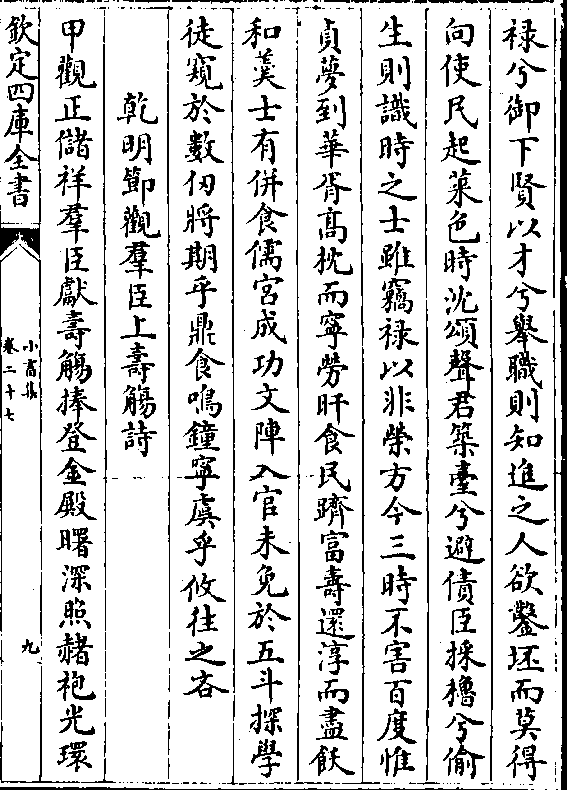 禄兮御下賢以才兮舉職則知進之人欲鑿坯而莫得
向使民起菜色時沈頌聲君築臺兮避債臣採櫓兮偷
生則識時之士雖竊禄以非榮方今三時不害百度惟
貞夢到華胥髙枕而寧勞旰食民躋富壽還淳而盡飫
和羮士有併食儒宮成功文陣入官未免於五斗探學
徒窺於數仞將期乎鼎食鳴鐘寧虞乎攸往之吝
乾明節觀羣臣上壽觴詩
甲觀正儲祥羣臣獻壽觴捧登金殿曙深照赭袍光環
欽定四庫全書
小畜集
卷二十七
九